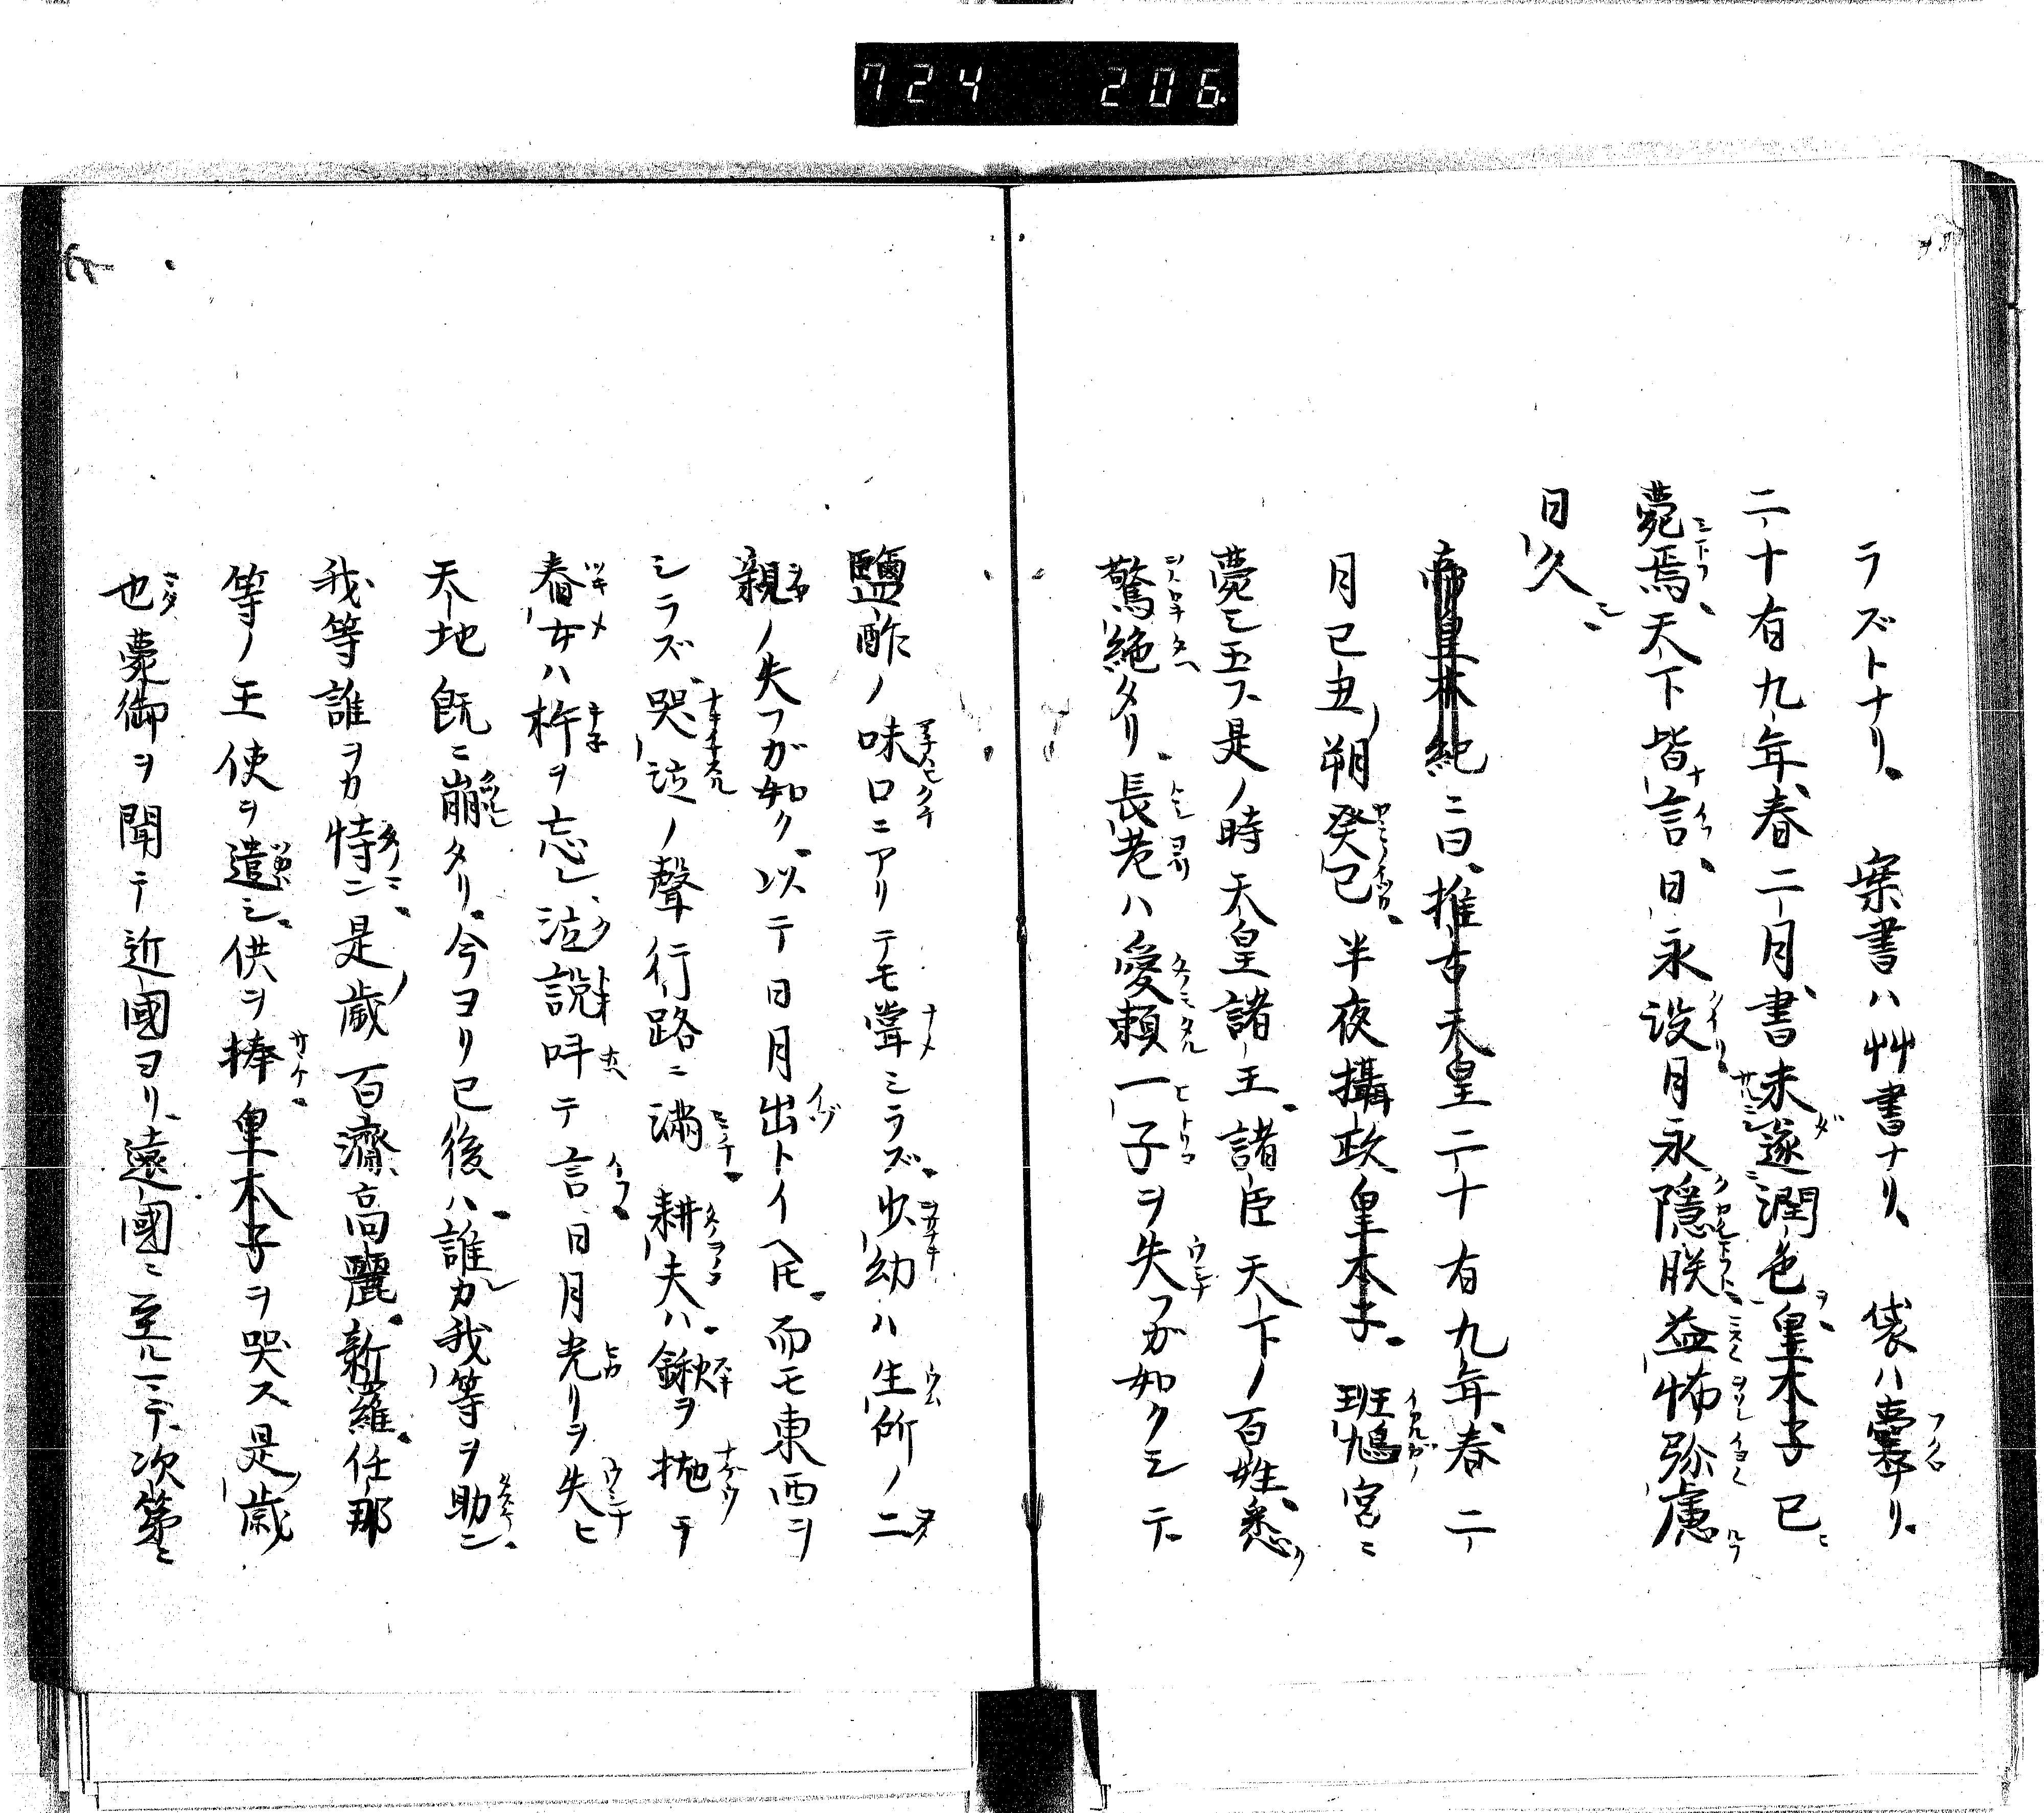 724 206
ラズトナリ 案書ハ艸書ナリ 袋ハ嚢ナリ
二十有九年春二月書未遂潤色皇太子已
薨焉天下皆言日永没月永隠朕益怖弥慮
日久
帝皇本紀ニ曰推古天皇二十有九年春二
月已丑朔癸已半夜攝政皇太子班鳩宮ニ
薨シ玉フ是ノ時天皇諸王諸臣天下ノ百姓悉
驚絶タリ長老ハ愛頼一子ヲ失フガ如クシテ
鹽酢ノ味口ニアリテモ甞シラズ少幼ハ生所ノ二
親ノ失フガ如ク以テ日月出トイヘ𪜈而モ東西ヲ
シラズ哭泣ノ聲行路ニ満耕夫ハ鍬ヲ抛テ
舂女ハ杵ヲ忘レ泣説呌テ言日月光リヲ失ヒ
天地既ニ崩タリ今ヨリ已後ハ誰カ我等ヲ助ン
我等誰ヲカ恃ン是歳百濟高麗新羅任那
等ノ王使ヲ遣シ供ヲ捧皇太子ヲ哭ス是歳
也薨御ヲ聞テ近國ヨリ遠國ニ至ルマデ次第ニ